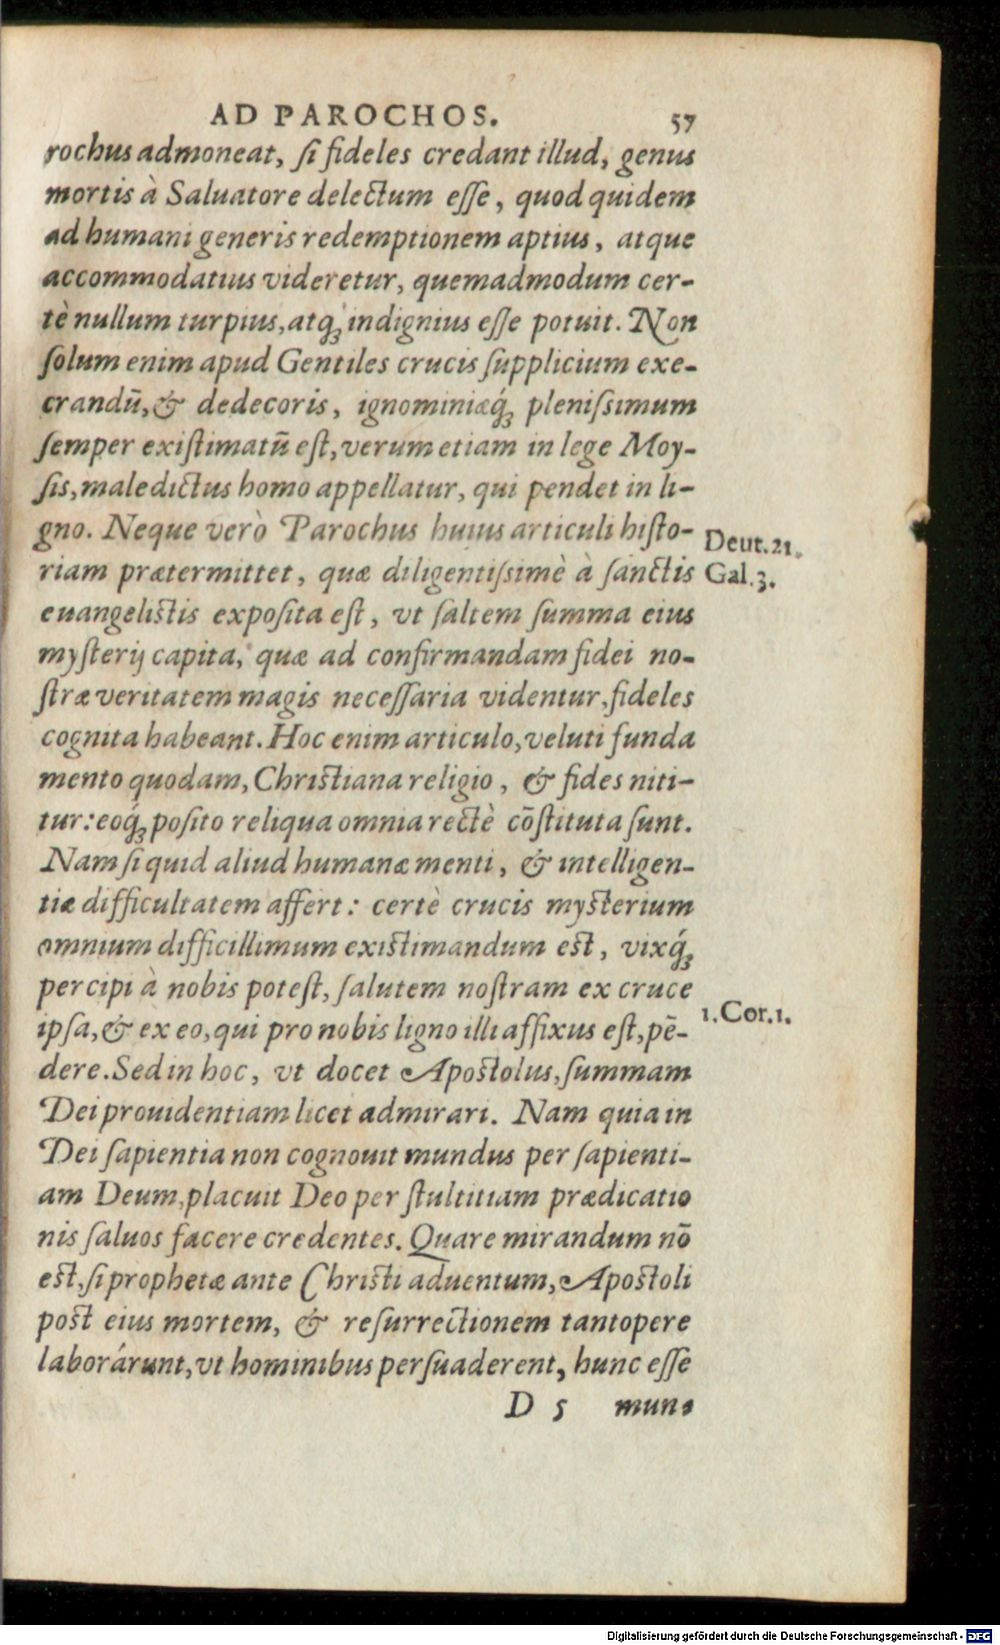 AD PAROCHOS. 57
rochus admoneat, si fideles credant illud, genus
mortis à Saluatore delectum esse, quod quidem
ad humani generis redemptionem aptius, atque
accommodatius videretur, quemadmodum cer-
tè nullum turpius, atq́; indignius esse potuit. Non
solum enim apud Gentiles crucis supplicium exe-
crandū, & dedecoris, ignominiæq́; plenissimum
semper existimatū est, verum etiam in lege Moy-
sis, maledictus homo appellatur, qui pendet in li-
gno. Neque verò Parochus huius articuli histo-
Deut. 21.
riam prætermittet, quæ diligentissimè à sanctis
Gal. 3.
euangelistis exposita est, vt saltem summa eius
mysterij capita, quæ ad confirmandam fidei no-
stræ veritatem magis necessaria videntur, fideles
cognita habeant. Hoc enim articulo, veluti funda
mento quodam, Christiana religio, & fides niti-
tur: eoq́; posito reliqua omnia rectè cōstituta sunt.
Nam si quid aliud humanæ menti, & intelligen-
tiæ difficultatem affert: certè crucis mysterium
omnium difficillimum existimandum est, vixq́;
percipi à nobis potest, salutem nostram ex cruce
ipsa, & ex eo, qui pro nobis ligno illi affixus est, pē-
1. Cor. 1.
dere. Sed in hoc, vt docet Apostolus, summam
Dei prouidentiam licet admirari. Nam quia in
Dei sapientia non cognouit mundus per sapienti-
am Deum, placuit Deo per stultitiam prædicatio
nis saluos facere credentes. Quare mirandum nō
est, si prophetæ ante Christi aduentum, Apostoli
post eius mortem, & resurrectionem tantopere
laborárunt, vt hominibus persuaderent, hunc esse
D 5 mun-
Digitalisierung gefördert durch die Deutsche Forschungsgemeinschaft - DFG